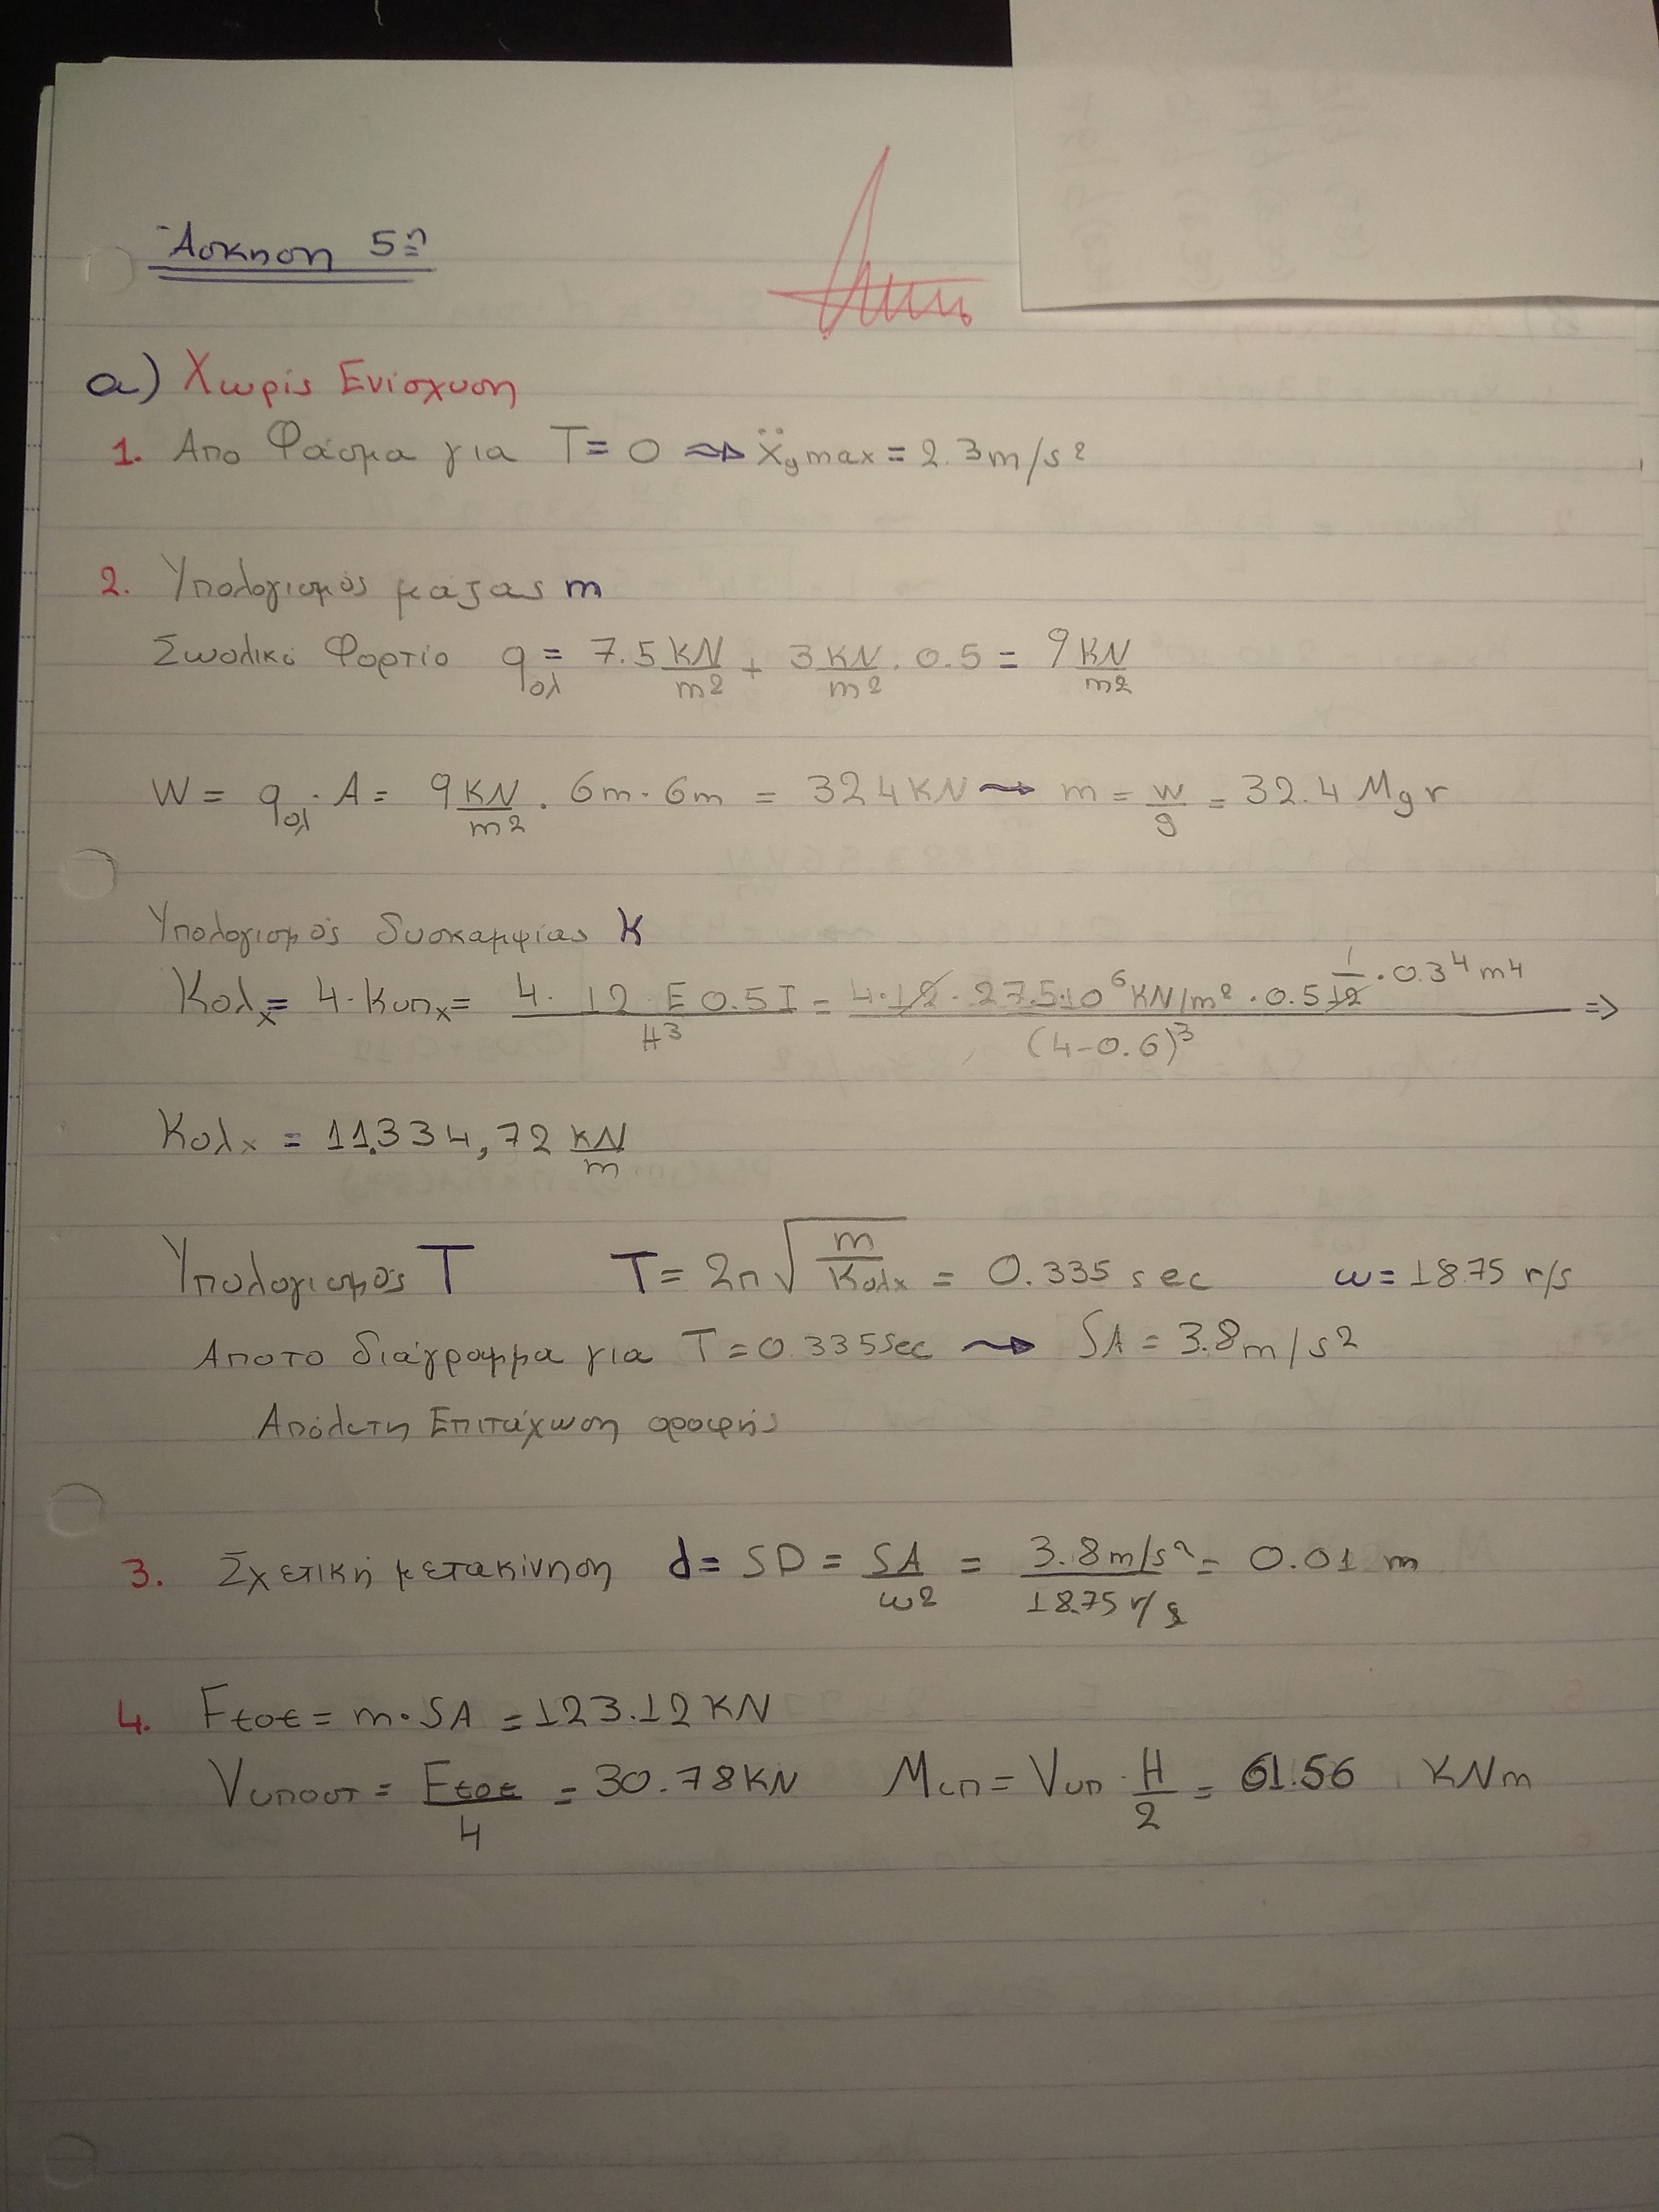 Άσκηση 5η
α) Χωρίς Ενίσχυση
1. Απο Φάσμα για T = 0 ⇒ ẍgmax = 2.3m/s²
2. Υπολογισμός μάζας m
Συνολικό Φορτίο qολ = 7.5 KN/m² + 3 KN/m² · 0.5 = 9 KN/m²
W = qολ · A = 9 KN/m² · 6m · 6m = 324 KN → m = W/g = 32.4 Mgr
Υπολογισμός δυσκαμψίας K
Kολx = 4 · Kυπx = 4 · 12 · E 0.5 I / H³ = 4 · 12 · 27.5·10⁶ KN/m² · 0.5 1/12 · 0.3⁴ m4 / (4-0.6)³ ⇒
Kολx = 11.334,72 KN/m
Υπολογισμός T T = 2π√(m/Kολx) = 0.335 sec ω = 18.75 r/s
Απο το διάγραμμα για T = 0.335 sec → SA = 3.8 m/s²
Απόλυτη Επιτάχυνση οροφής
3. Σχετική μετακίνηση d = SD = SA/ω² = 3.8 m/s² / 18.75 r/s = 0.01 m
4. Ftot = m · SA = 123.12 KN
Vυποστ = Ftot/4 = 30.78 KN Mυπ = Vυπ · H/2 = 61.56 KNm